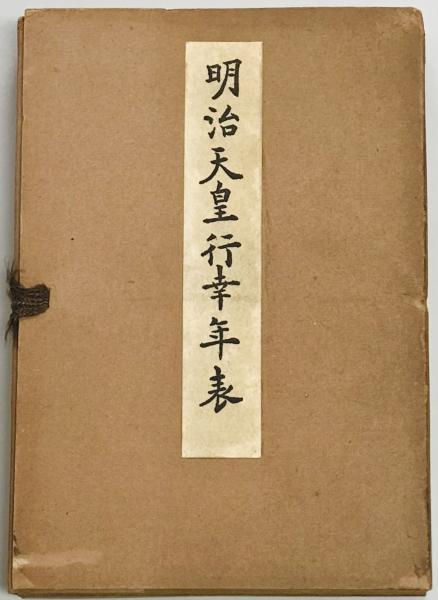 明治天皇行幸年表